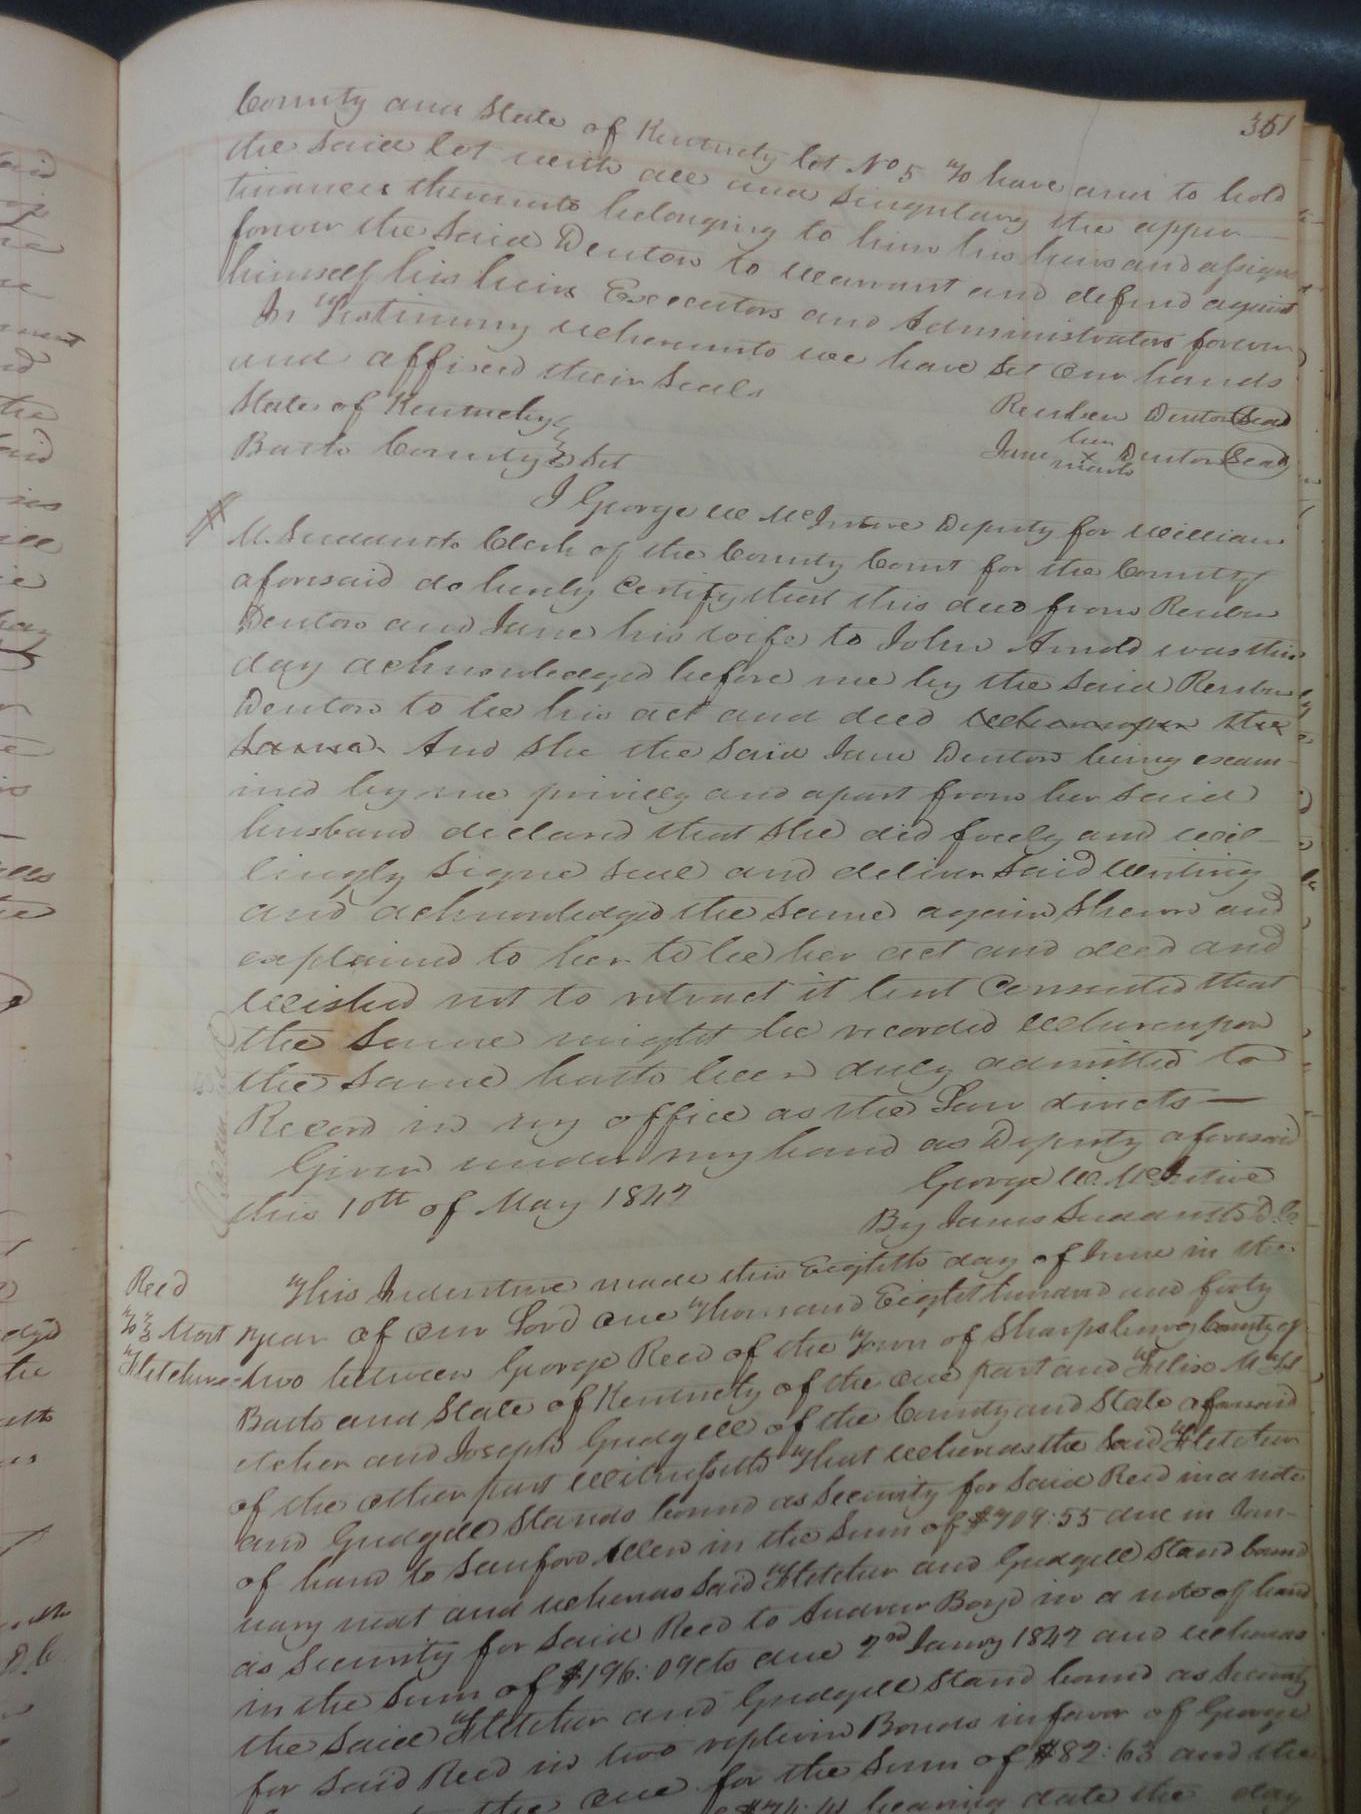 351
County and State of Kentucky lot No 5 To have and to hold
the said lot with all and singularly the appur
tinances thereunto belonging to him his heirs and assigns
forever the said Denton to warrant and defend against
himself his heirs Executors and Administrators forever
In Testimony whereunto we have set our hands
and affixed their seals
Reuben Denton Seal
Jane her x mark Denton Seal
State of Kentucky
Bath County Sct
I George W McIntire Deputy for William
M. Suddarth Clerk of the County Court for the County
aforesaid do hereby certify that this deed from Reuben
Denton and Jane his wife to John Arnold was this
day acknowledged before me by the said Reuben
Denton to be his act and deed whereupon the
same. And she the said Jane Denton being exam
ined by me privily and apart from her said
husband declared that she did freely and wil
lingly signe seal and deliver said writing
and acknowledged the same again shewn and
explained to her to be her act and deed and
wished not to retract it but consented that
the same might be recorded whereupon
the same hath been duly admitted to
Record in my office as the Law directs
Given under my hand as Deputy aforesaid
this 10th of May 1842
George W McIntire
By James Suddarth D.C
Reed
To Mort
Fletcher
This Indenture made this Eighth day of June in the
year of our Lord one Thousand Eight hundred and forty
two between George Reed of the Town of Sharpsburg County of
Bath and State of Kentucky of the one part and Felix M Fl
etcher and Joseph Gudgell of the County and State aforesaid
of the other part Witnesseth That whereas the said Fletcher
and Gudgell Stands bound as Security for said Reed in a note
of hand to Sanford Allen in the Sum of $709:55 due in Jan
uary next and whereas said Fletcher and Gudgell Stand bound
as Security for said Reed to Andrew Boyd in a note of hand
in the sum of $196:09cts due 2nd Janry 1842 and whereas
the said Fletcher and Gudgell Stand bound as Security
for said Reed in two replevin Bonds in favor of George
one for the Sum of $82:63 and the
bearing date the day